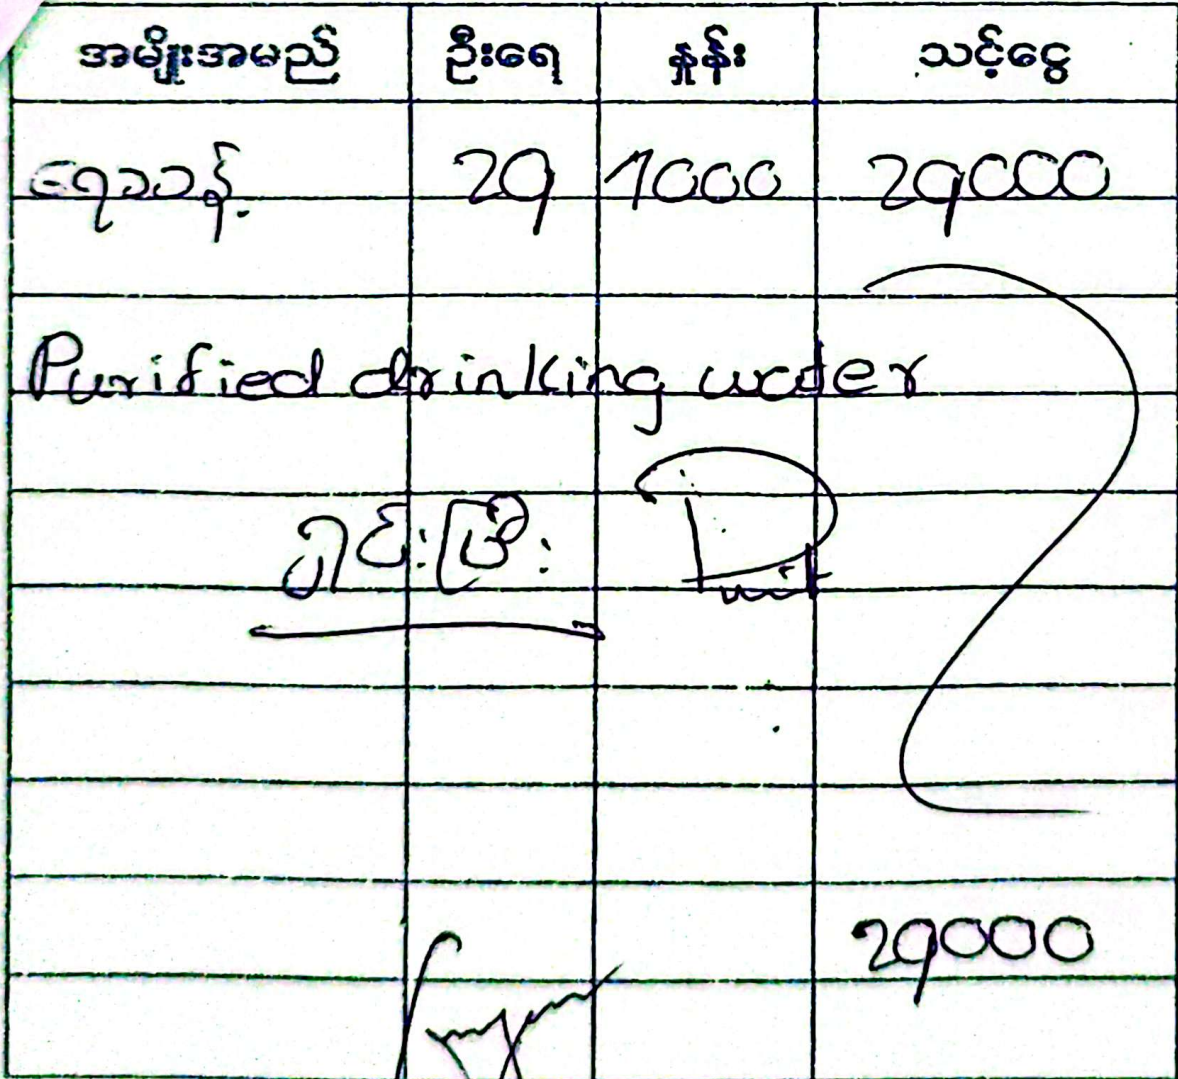 အမျိုးအမည် ဦးရေ နှုန်း သင့်ငွေ
ရေသန့် 29 1000 29000
Purified drinking water
ရှင်းပြီး
29000